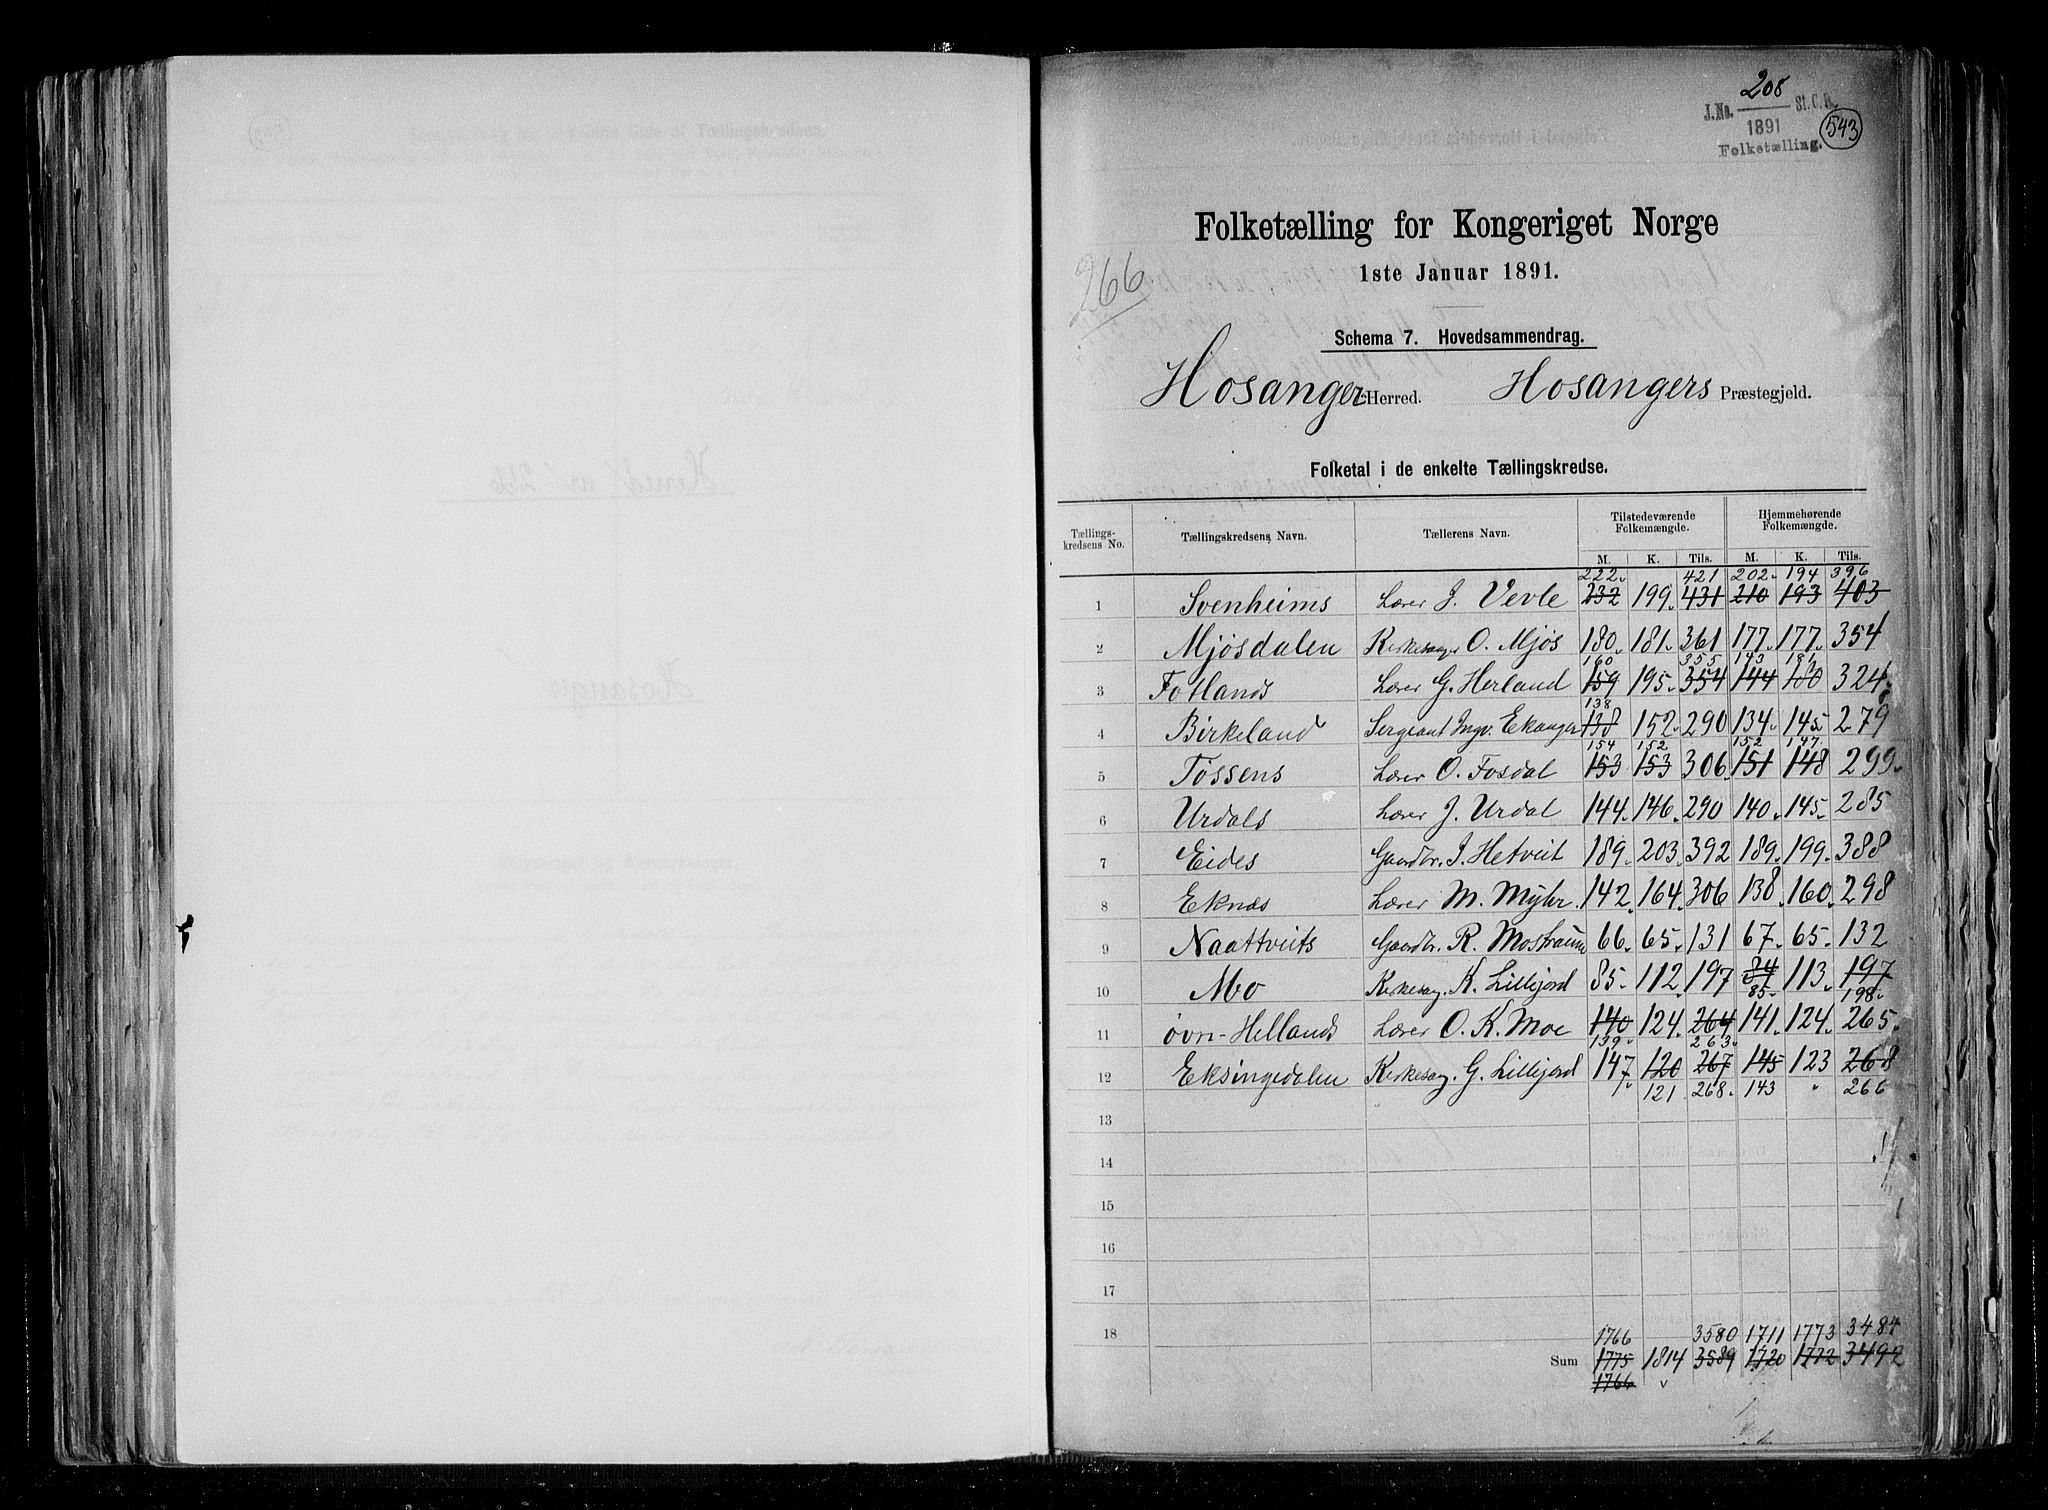 208
J.No. St. C. B.
1891
Folketælling.
543
Folketælling for Kongeriget Norge
1ste Januar 1891.
266
Schema 7. Hovedsammendrag.
Hosanger Herred. Hosangers Præstegjeld.
Folketal i de enkelte Tællingskredse.
Tællings-kredsens No. Tællingskredsens Navn. Tællerens Navn. Tilstedeværende Folkemængde. Hjemmehørende Folkemængde.
M. K. Tils. M. K. Tils.
222. 421 202. 194 396
1 Svenheims Lærer J. Vevle 232 199. 431 210 193 403
2 Mjösdalen Kirkesanger O. Mjös 180. 181. 361 177. 177. 354
160 355 143 181
3 Fotlands Lærer G. Herland 159 195. 354 144 180 324.
138
4 Birkeland Sergeant Ingv. Ekanger 138 152. 290 134. 145. 279
154 152 152 147
5 Tössens Lærer O. Fosdal 153 153 306. 151 148 299.
6 Urdals Lærer J. Urdal 144. 146. 290 140. 145. 285
7 Eides Gaardbr. J. Hetveit 189. 203. 392 189. 199. 388
8 Eknæs Lærer M. Myhr. 142. 164. 306 138. 160. 298
9 Naattveits Gaardbr. R. Mostraum 66. 65. 131 67. 65. 132
10 Mo Kirkesag. K. Lillejord 85. 112. 197 84 113. 197
85. 198.
11 övn-Hellands Lærer O. K. Moe 140 124. 264 141. 124. 265.
139. 263.
12 Eksingedalen Kirkesag. G. Lillejord 147 120 267 145 123 268
121. 268. 143 " 266
13
14
15
16
17
18
1766 3580 1711 1773 3484
Sum 1775 1814 3589 1720 1772 3492
1766